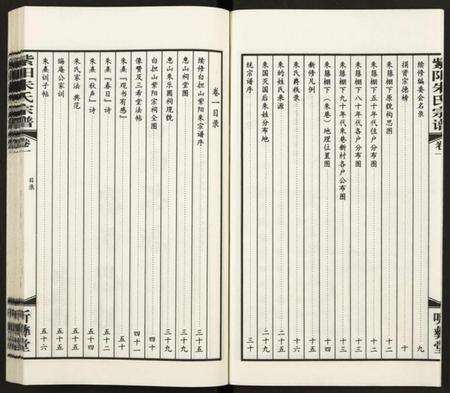 紫阳朱氏宗谱 卷一
续修编委会名录 九
捐资宗德榜 十
朱藤棚下原貌构思图 十二
朱藤棚下五十年代住户分布图 十二
朱藤棚下八十年代各户分布图 十三
朱藤棚下九十年代朱巷新村各户公布图 十三
朱藤棚下（朱巷）地理位置图 十四
新修凡例
朱氏爵秩录 十六
朱的姓氏来源 二十九
朱国灭国后朱姓分布地 二十九
统宗谱序 三十
卷一目录
续修白担山紫阳朱宗谱序 三十五
惠山祠堂图 三十九
惠山朱乐圃祠现貌 三十九
白担山紫阳宗祠全图 四十
像赞及三希堂法帖 四十一
朱熹『观书有感』 五十
朱熹『春日』诗 五十二
朱熹『秋声』诗 五十四
朱氏家法 典范 五十五
晦庵公家训 五十五
朱熹训子帖 五十六
目录
紫阳朱氏宗谱 卷一